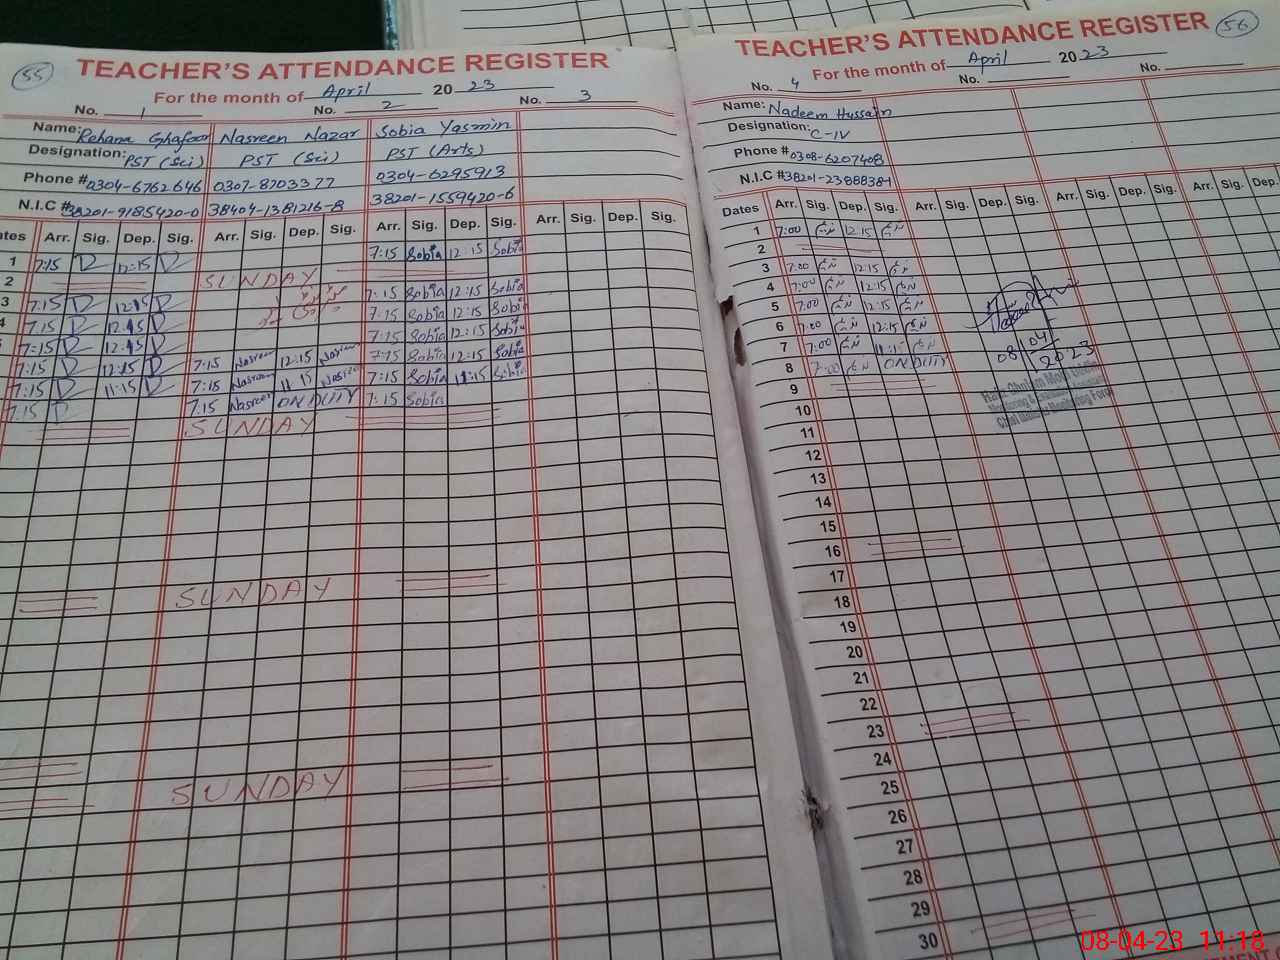 55
TEACHER'S ATTENDANCE REGISTER
For the month of April 2023
No. 1 No. 2 No. 3
Name: Rehana Ghafoor Nasreen Nazar Sobia Yasmin
Designation: PST (Sci) PST (Sci) PST (Arts)
Phone # 0304-6762646 0307-8703377 0304-6295913
N.I.C # 38201-9185420-0 38404-1381216-8 38201-1559420-6
ates Arr. Sig. Dep. Sig. Arr. Sig. Dep. Sig. Arr. Sig. Dep. Sig. Arr. Sig. Dep. Sig.
1 7:15 12:15 7:15 Sobia 12:15 Sobia
2 SUNDAY
3 7:15 12:15 7:15 Sobia 12:15 Sobia
4 7:15 12:15 7:15 Sobia 12:15 Sobia
7:15 12:15 7:15 Sobia 12:15 Sobia
7:15 12:15 7:15 Nasreen 12:15 Nasreen 7:15 Sobia 12:15 Sobia
7:15 11:15 7:15 Nasreen 11:15 Nasreen 7:15 Sobia 11:15 Sobia
7:15 7:15 Nasreen ON DUTY 7:15 Sobia
SUNDAY
SUNDAY
SUNDAY
56
TEACHER'S ATTENDANCE REGISTER
For the month of April 2023
No. 4 No. No.
Name: Nadeem Hussain
Designation: C-IV
Phone # 0308-6207408
N.I.C # 38201-2388838-1
Dates Arr. Sig. Dep. Sig. Arr. Sig. Dep. Sig. Arr. Sig. Dep. Sig. Arr. Sig. Dep.
1 7:00 12:15
2
3 7:00 12:15
4 7:00 12:15
5 7:00 12:15
6 7:00 12:15
7 7:00 11:15
8 7:00 ON DUTY
9
10
11
12
13
14
15
16
17
18
19
20
21
22
23
24
25
26
27
28
29
30
08/04/2023
08-04-23 11:18